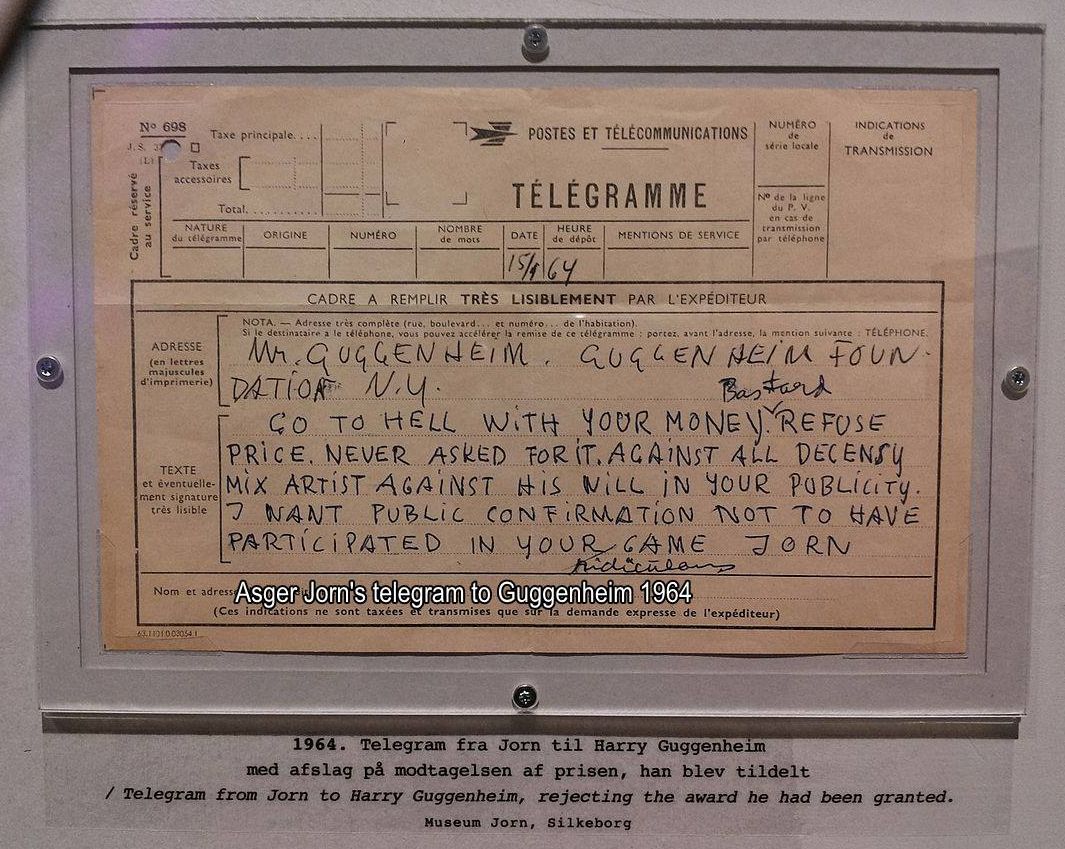 Nº 698
J. S.
(L)
Cadre réservé
au service
Taxe principale....
Taxes
accessoires
Total...........
POSTES ET TÉLÉCOMMUNICATIONS
TÉLÉGRAMME
NUMÉRO
de
série locale
Nº de la ligne
du P. V.
en cas de
transmission
par téléphone
INDICATIONS
de
TRANSMISSION
NATURE
du télégramme
ORIGINE
NUMÉRO
NOMBRE
de mots
DATE
HEURE
de dépôt
MENTIONS DE SERVICE
15/1 64
CADRE A REMPLIR TRÈS LISIBLEMENT PAR L'EXPÉDITEUR
ADRESSE
(en lettres
majuscules
d'imprimerie)
NOTA. — Adresse très complète (rue, boulevard... et numéro... de l'habitation).
Si le destinataire a le téléphone, vous pouvez accélérer la remise de ce télégramme : portez, avant l'adresse, la mention suivante : TÉLÉPHONE.
Mr. GUGGENHEIM. GUGGENHEIM FOUN-
DATION N.Y.
Bastard
TEXTE
et éventuelle-
ment signature
très lisible
GO TO HELL WITH YOUR MONEY. REFUSE
PRICE. NEVER ASKED FOR IT. AGAINST ALL DECENSY
MIX ARTIST AGAINST HIS WILL IN YOUR PUBLICITY.
I WANT PUBLIC CONFIRMATION NOT TO HAVE
PARTICIPATED IN YOUR GAME JORN
Ridiculous
Nom et adresse
Asger Jorn's telegram to Guggenheim 1964
(Ces indications ne sont taxées et transmises que sur la demande expresse de l'expéditeur)
1964. Telegram fra Jorn til Harry Guggenheim
med afslag på modtagelsen af prisen, han blev tildelt
/ Telegram from Jorn to Harry Guggenheim, rejecting the award he had been granted.
Museum Jorn, Silkeborg